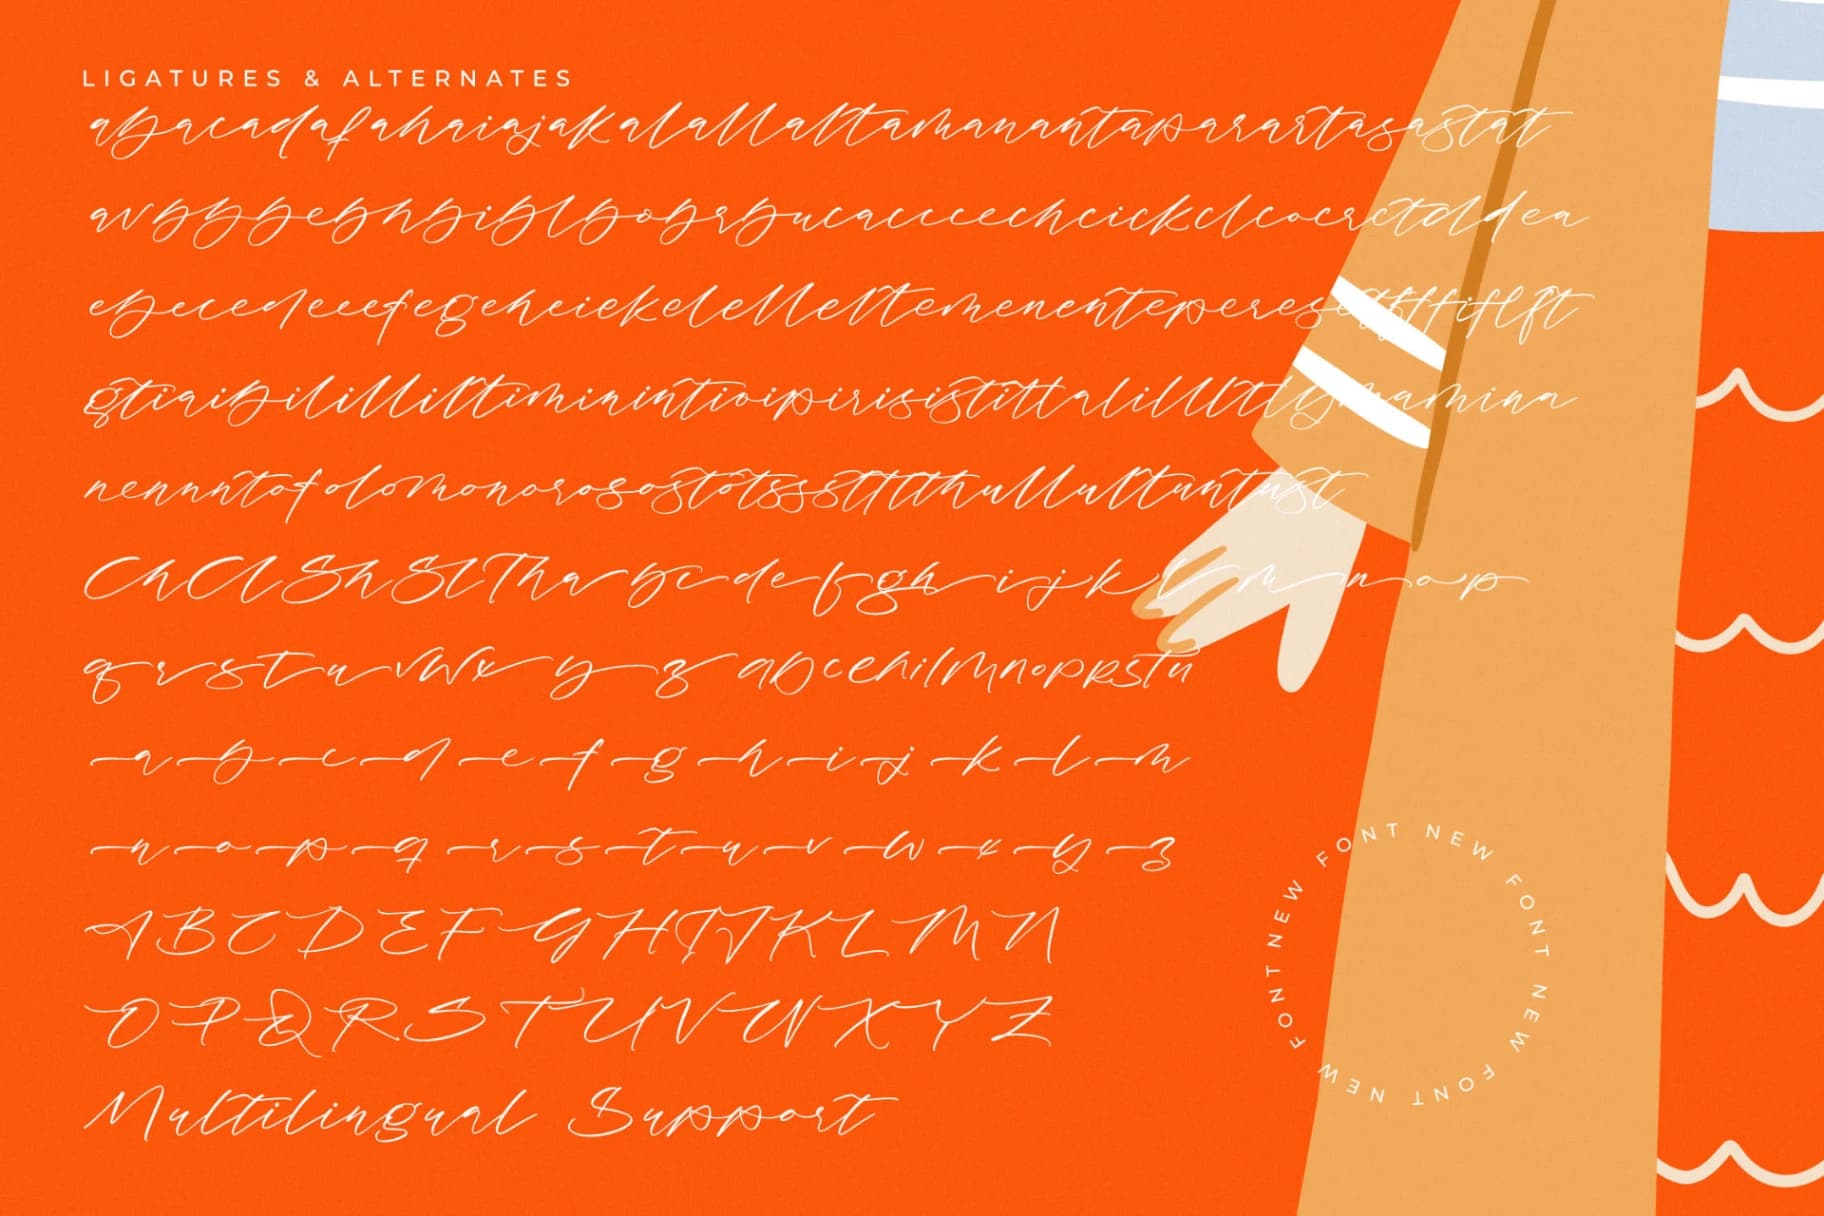 LIGATURES & ALTERNATES
abacadafahaiajakalallaltamanantaparartasastat
avbbbebhbiblbobrbucacccechcickclcocrctdldea
ebecedeeefegeheiekelelleltemenenteperesestffffiflft
gtiaibililliltiminintioipirisistittlalilllltlymamina
nennntofolomonorosostotssstttthullultuntust
ChClShSlThabcdefghijklmnop
qrstuvwxyzabcehilmnopprstu
abcdefghijklm
nopqrstuvwxyz
ABCDEFGHIJKLMN
OPQRSTUVWXYZ
Multilingual Support
FONT NEW FONT NEW FONT NEW FONT NEW